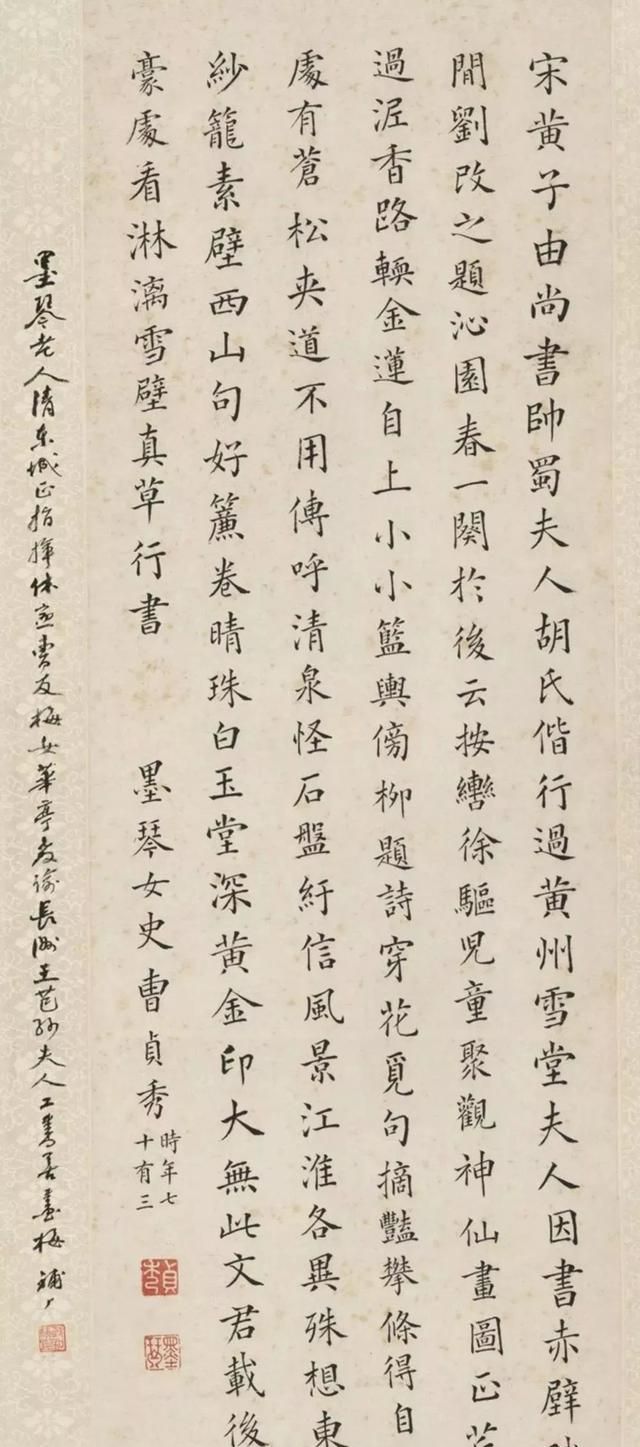 宋黄子由尚書帥蜀夫人胡氏偕行過黄州雪堂夫人因書赤壁
閒劉改之題沁園春一闋於後云按轡徐驅児童聚觀神仙畫圖正
過泥香路轉金蓮自上小小籃輿傍柳題詩穿花覓句摘豔攀條得自
處有蒼松夾道不用傳呼清泉怪石盤紆信風景江淮各異殊想東
紗籠素壁西山句好簾卷晴珠白玉堂深黄金印大無此文君載後
豪處看淋漓雪壁真草行書 墨琴女史曹貞秀 時年七
十有三
貞秀
墨琴
墨琴老人清東城正指揮休 曹友梅女華亭 長洲王芑孫夫人工書善畫梅